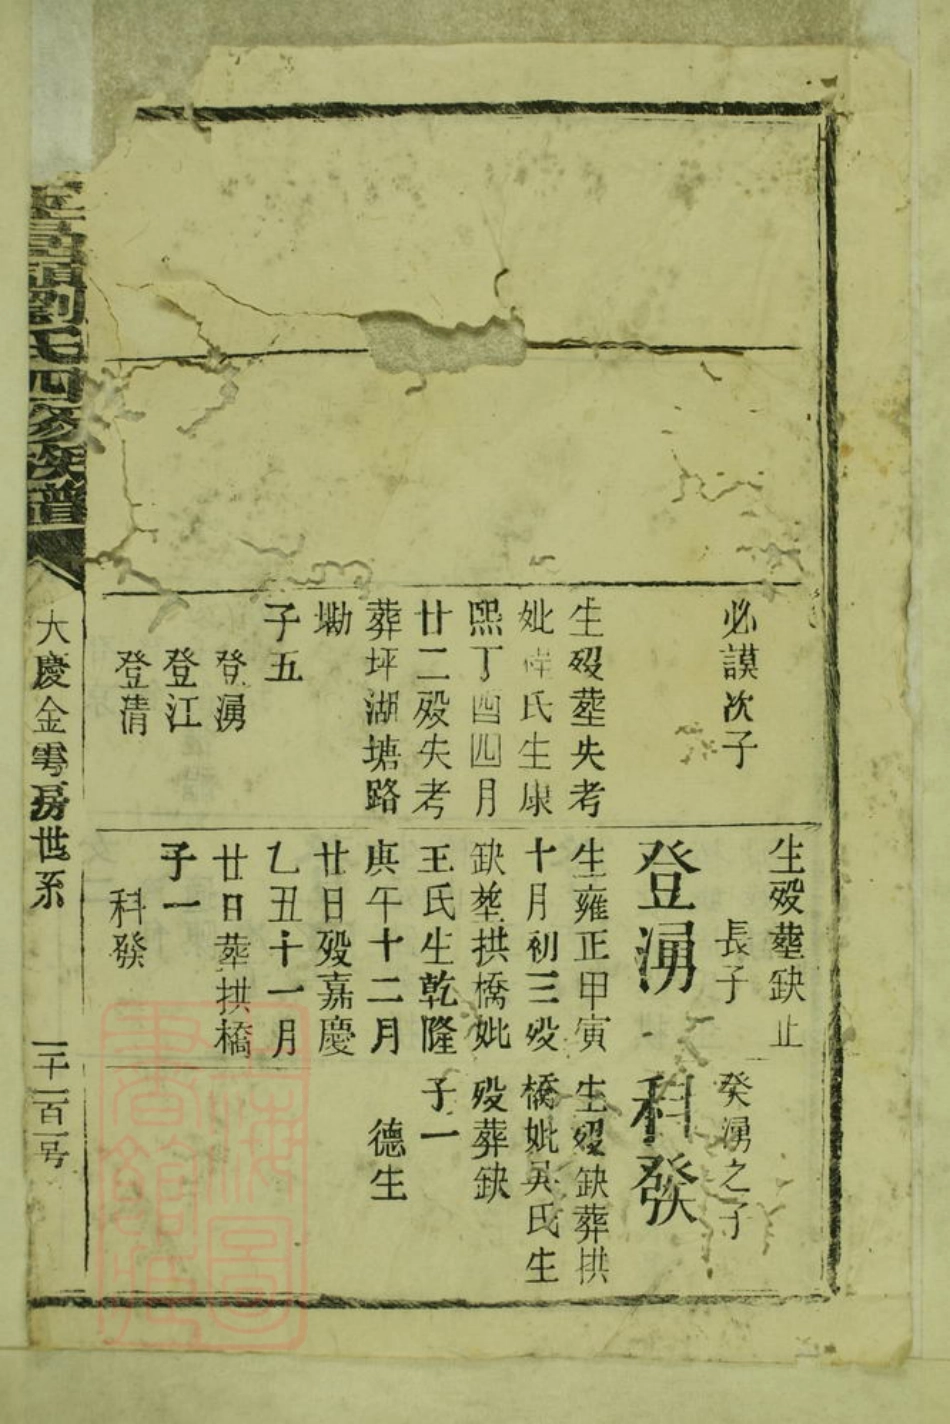 必謨次子
生殁塟失考
妣
氏生康
熙丁酉四月
廿二殁失考
葬坪湖塘路
坳
子五
登湧
登江
登清
生殁塟缺止
長子
登湧
生雍正甲寅
十月初三殁
缺塟拱橋妣
王氏生乾隆
庚午十二月
廿日殁嘉慶
乙丑十一月
廿日葬拱橋
子一
科發
癸湧之子
科發
生殁缺葬拱
橋妣吴氏生
殁葬缺
子一
德生
劉氏四修族譜
大慶金雩房世系
一千一百一号